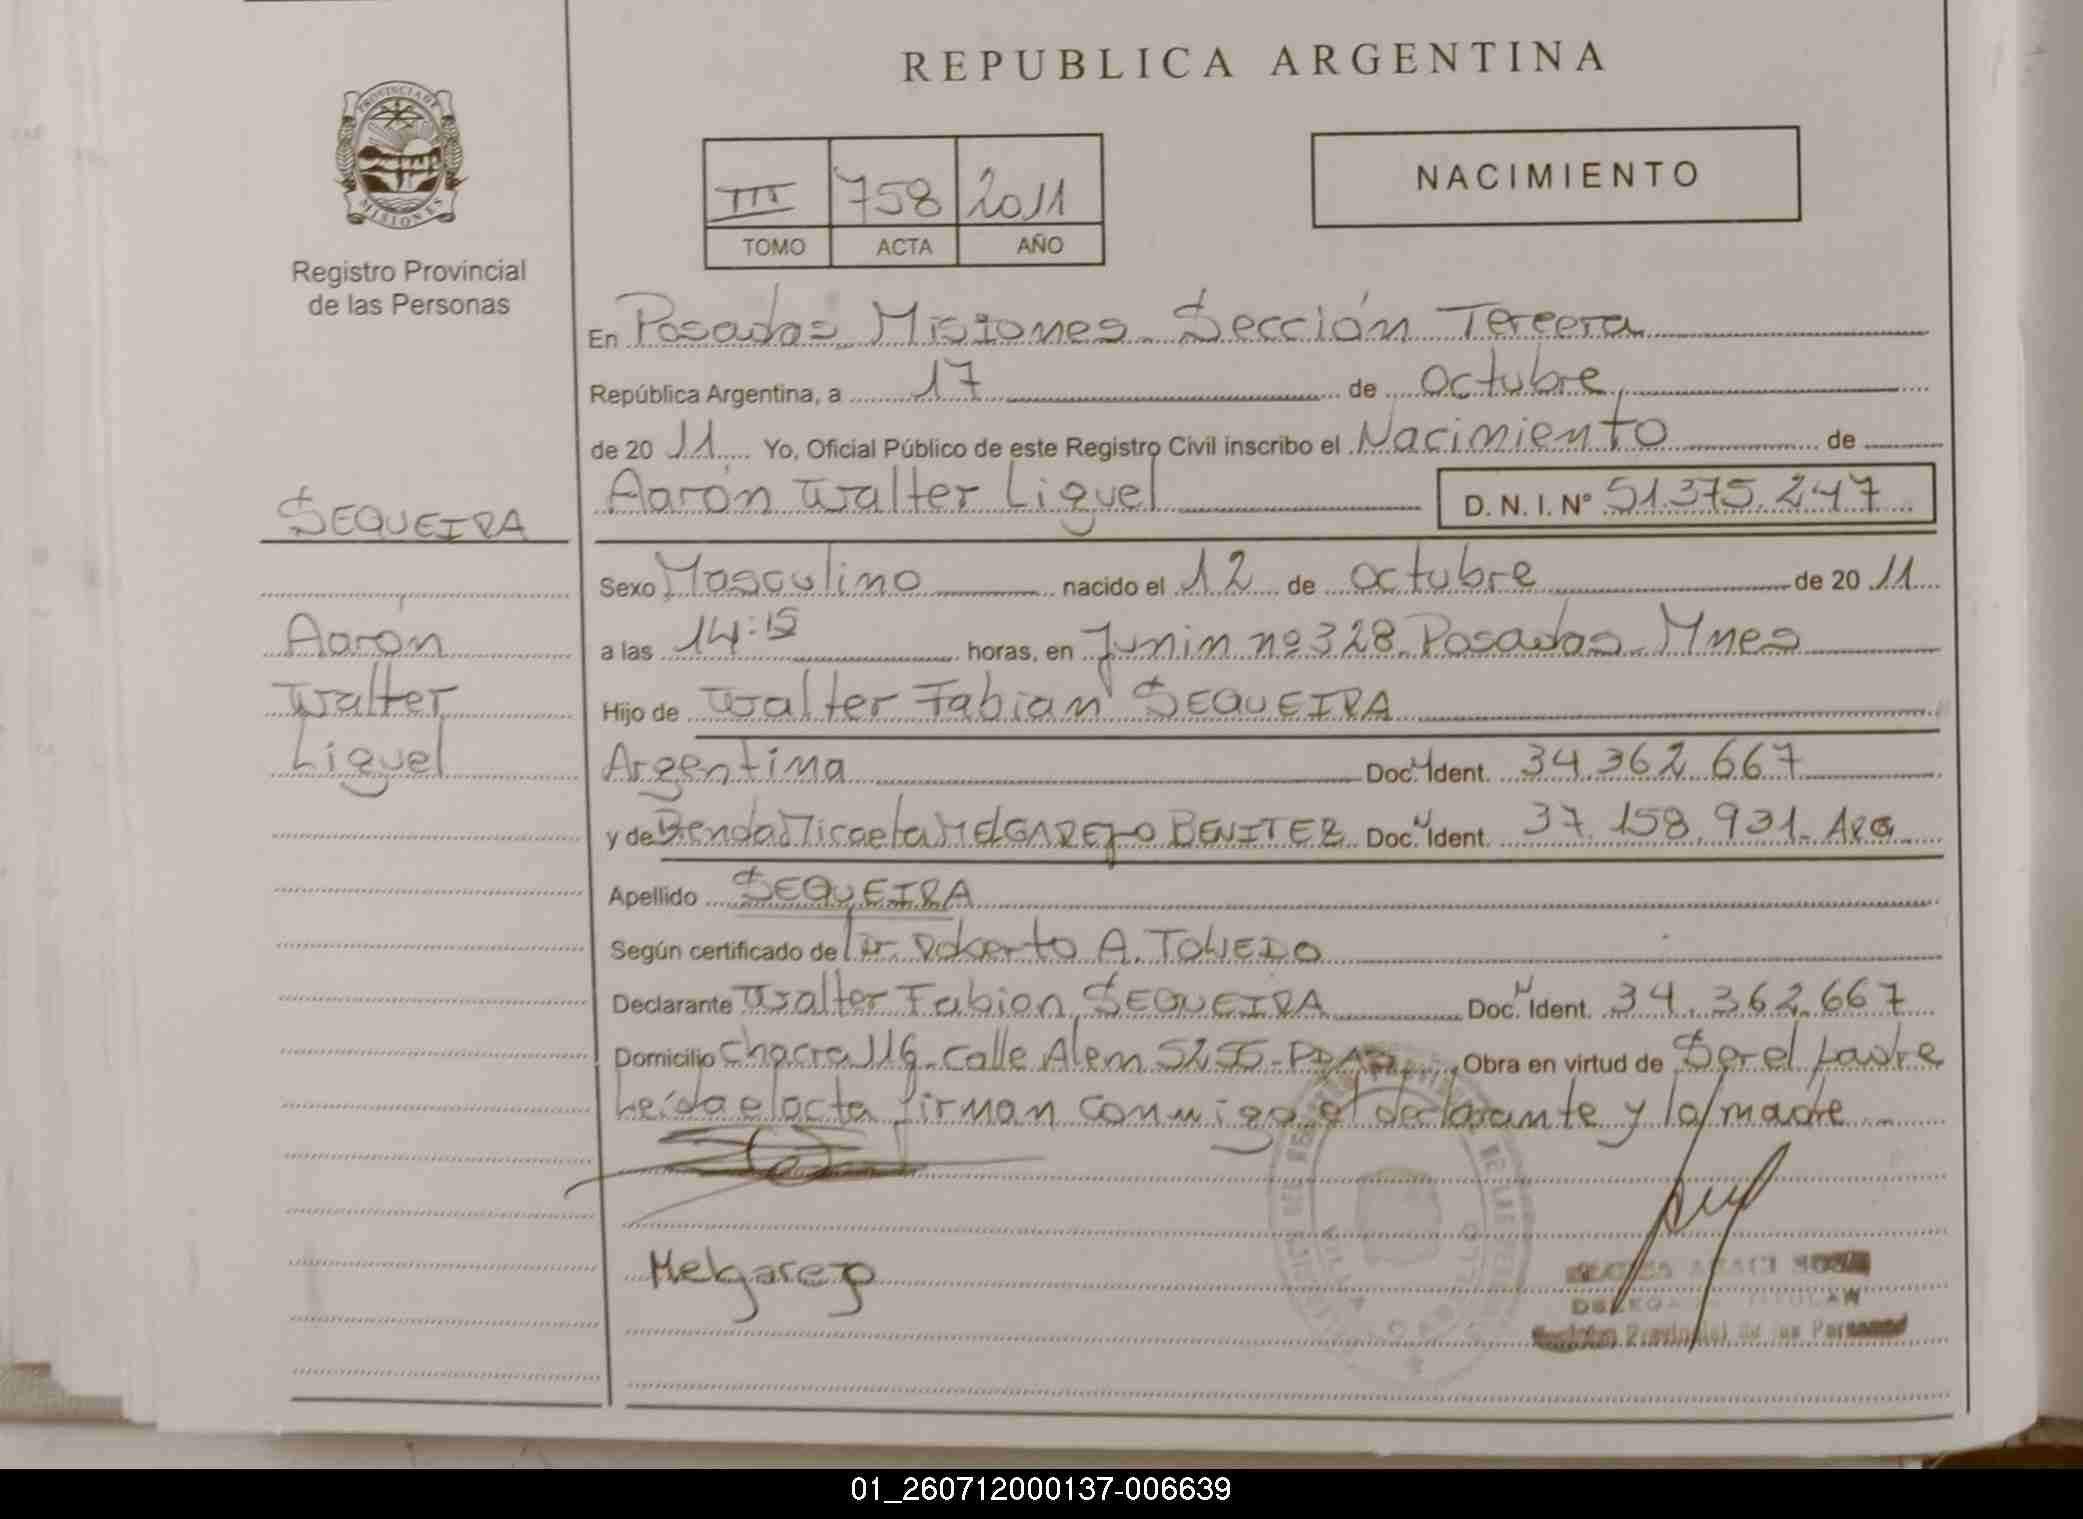 REPUBLICA ARGENTINA
PROVINCIA DE
MISIONES
Registro Provincial
de las Personas
III 758 2011
TOMO ACTA AÑO
NACIMIENTO
En Posadas Misiones Sección Tercera
República Argentina, a 17 de octubre
de 20 11 Yo, Oficial Público de este Registro Civil inscribo el Nacimiento de
SEQUEIRA
Aarón Walter Liguel D. N. I. Nº 51.375.247
Sexo Masculino nacido el 12 de octubre de 20 11
Aarón
Walter
Liguel
a las 14:15 horas, en Junin nº 328 Posadas Mnes
Hijo de Walter Fabian SEQUEIRA
Argentina Doc. Ident. 34.362.667
y de Micaela MELGAREJO BENITEZ Doc. Ident. 37.158.931. ARG
Apellido SEQUEIRA
Según certificado de Dr. Roberto A. TOLEDO
Declarante Walter Fabian SEQUEIRA Doc. Ident. 34.362.667
Domicilio Chacra 116 - Calle Alem 5255 - Obra en virtud de Ser el padre
Leída el acta firman conmigo el declarante y la madre
Melgarejo
Provincial de las Personas
01_260712000137-006639